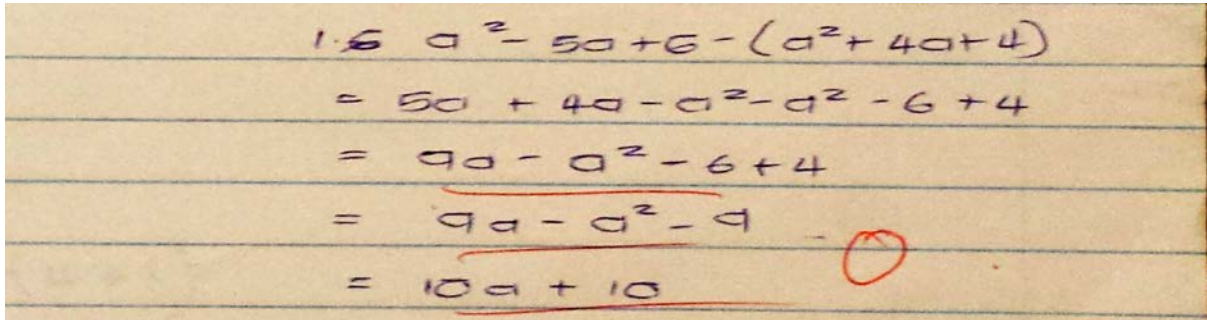 1.6 a² - 5a + 6 - (a² + 4a + 4)
= 5a + 4a - a² - a² - 6 + 4
= 9a - a² - 6 + 4
= 9a - a² - 9
= 10a + 10